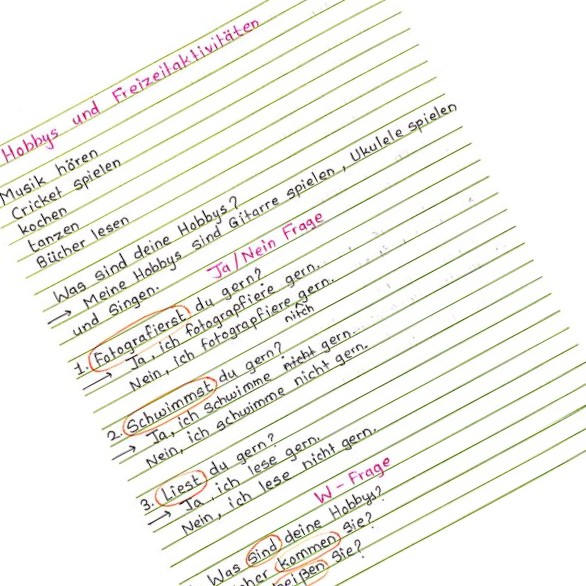 Hobbys und Freizeitaktivitäten
Musik hören
Cricket spielen
kochen
tanzen
Bücher lesen
Was sind deine Hobbys?
→ Meine Hobbys sind Gitarre spielen, Ukulele spielen
und Singen.
Ja/Nein Frage
1. Fotografierst du gern?
→ Ja, ich fotograpfiere gern.
Nein, ich fotograpfiere gern.
nitch
2. Schwimmst du gern?
→ Ja, ich schwimme nicht gern.
Nein, ich schwimme nicht gern.
3. Liest du gern?
→ Ja, ich lese gern.
Nein, ich lese nicht gern.
W-Frage
Was sind deine Hobby?
kommen Sie?
Sie?